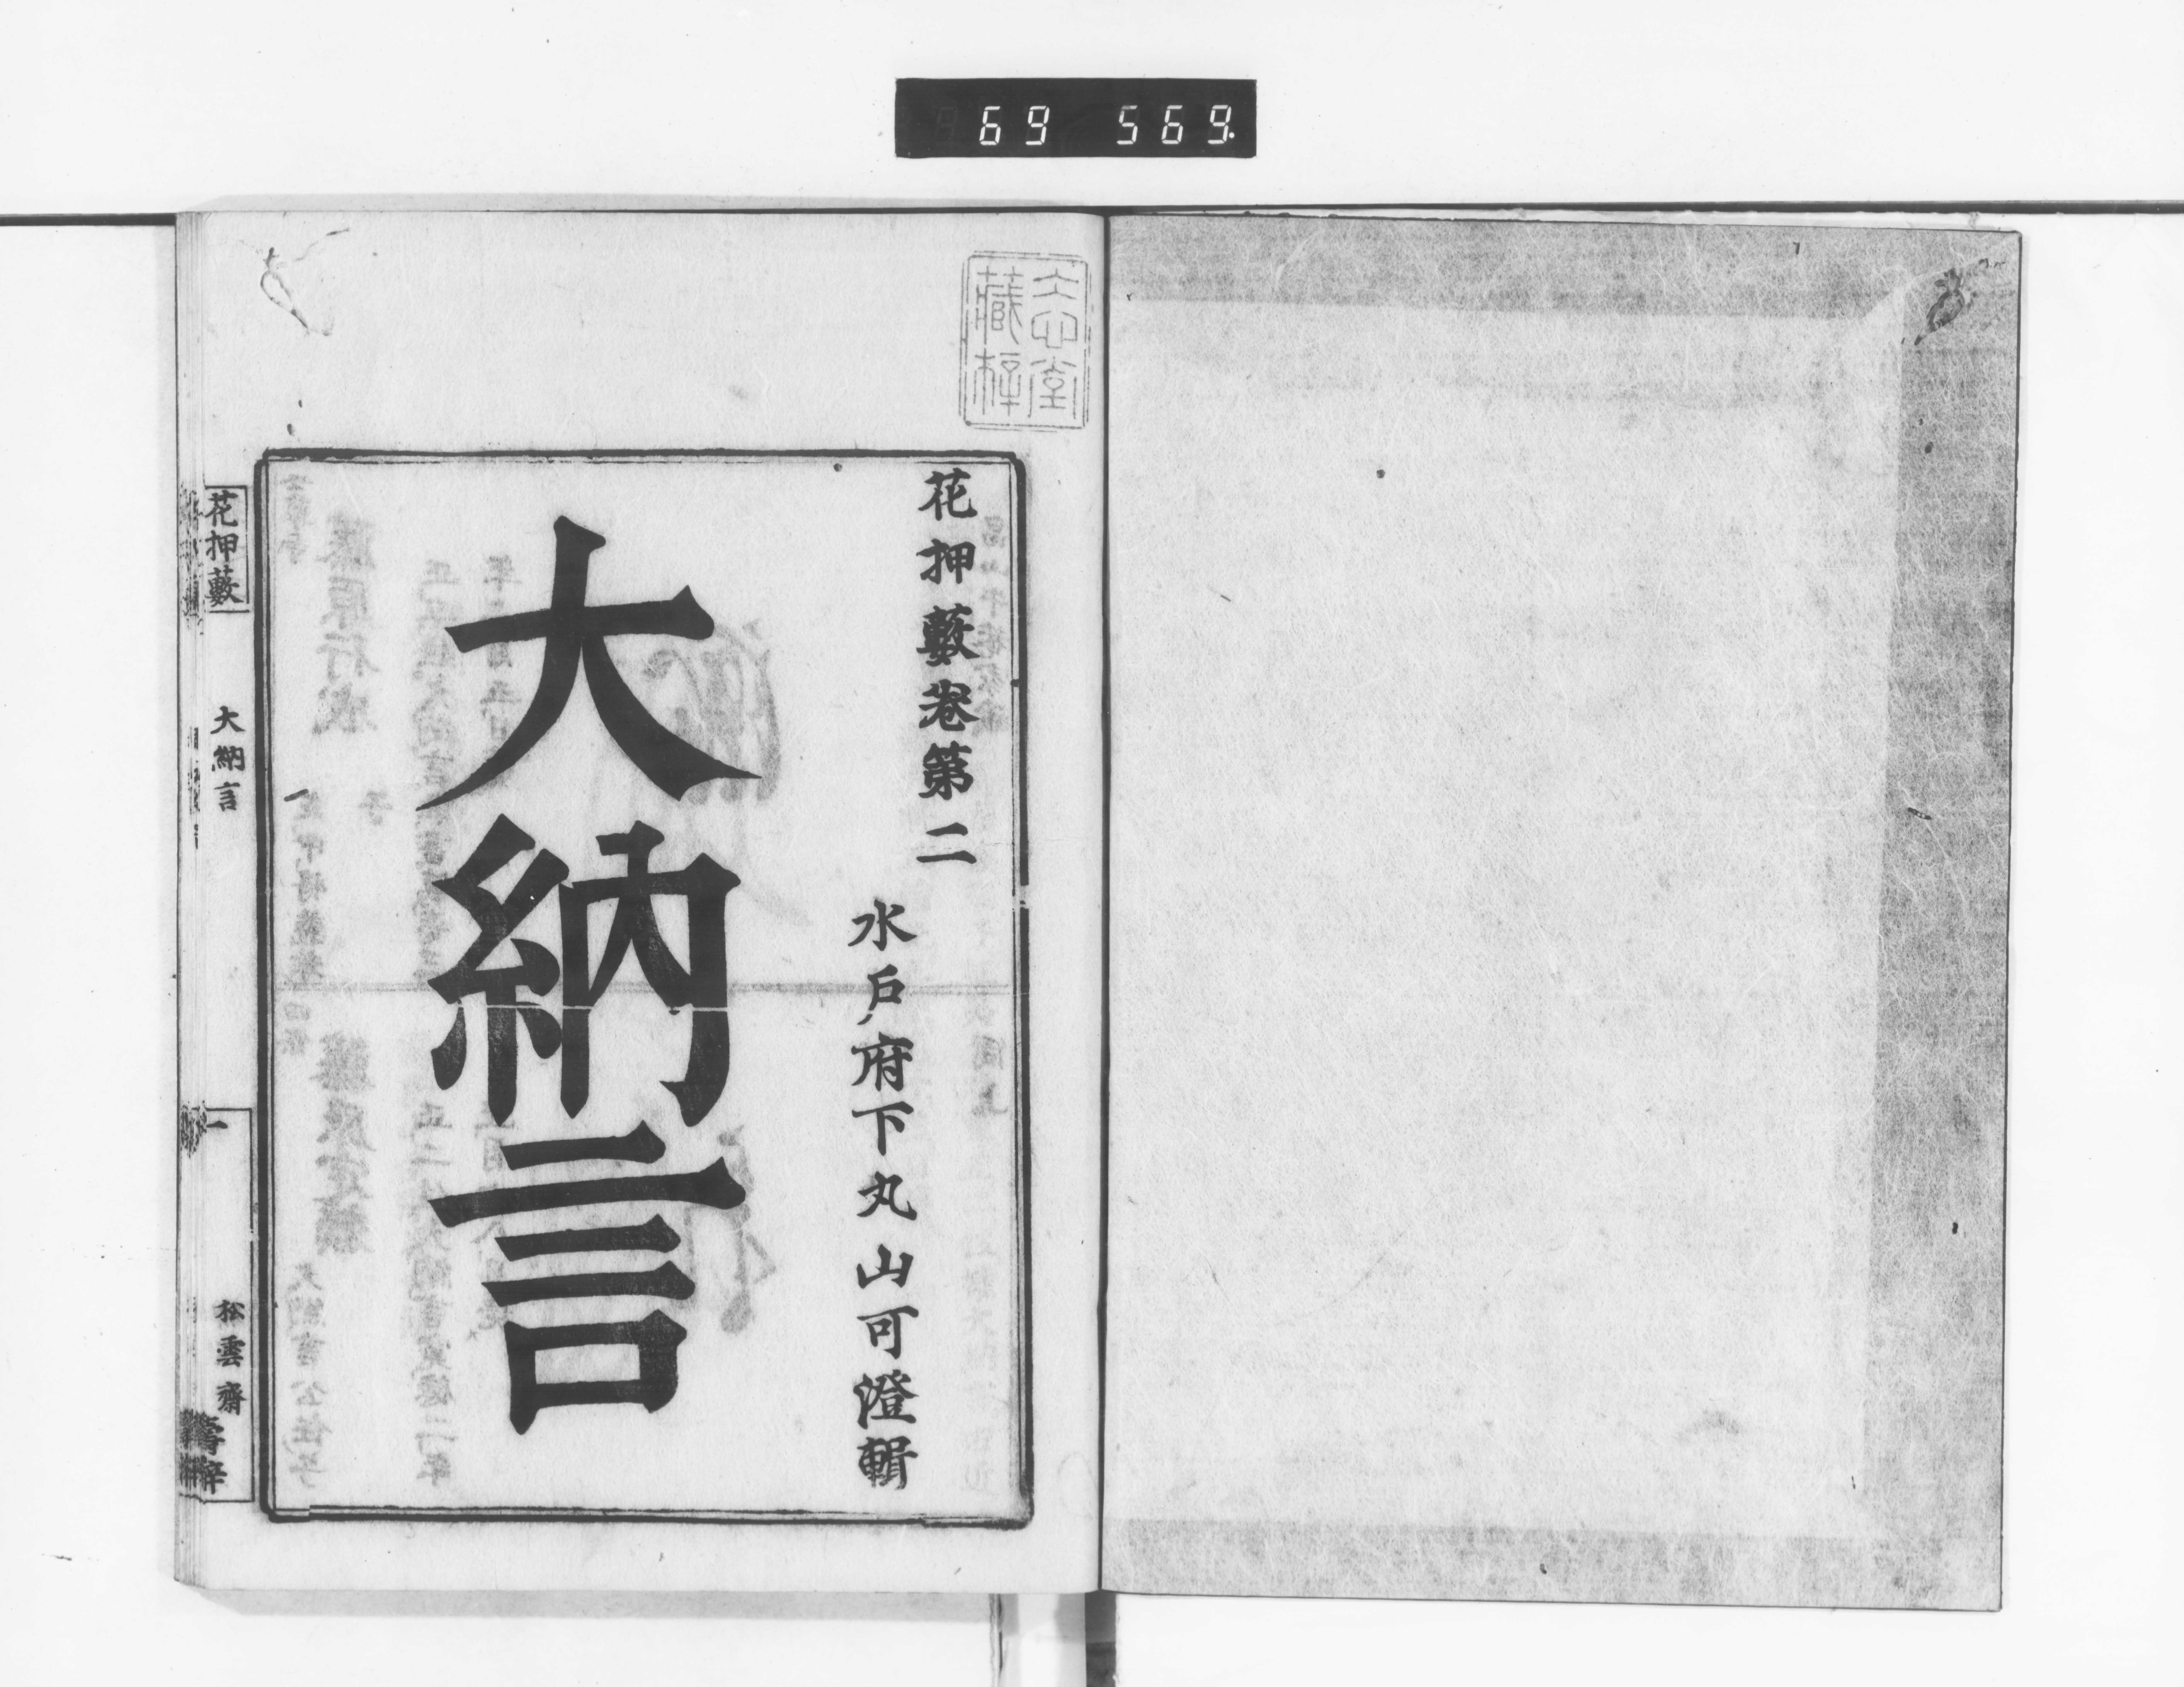 69 569.
志堂
藏梓
花押藪卷第二
水戶府下丸山可澄輯
大納言
花押藪
大納言
一
松雲齋
壽梓